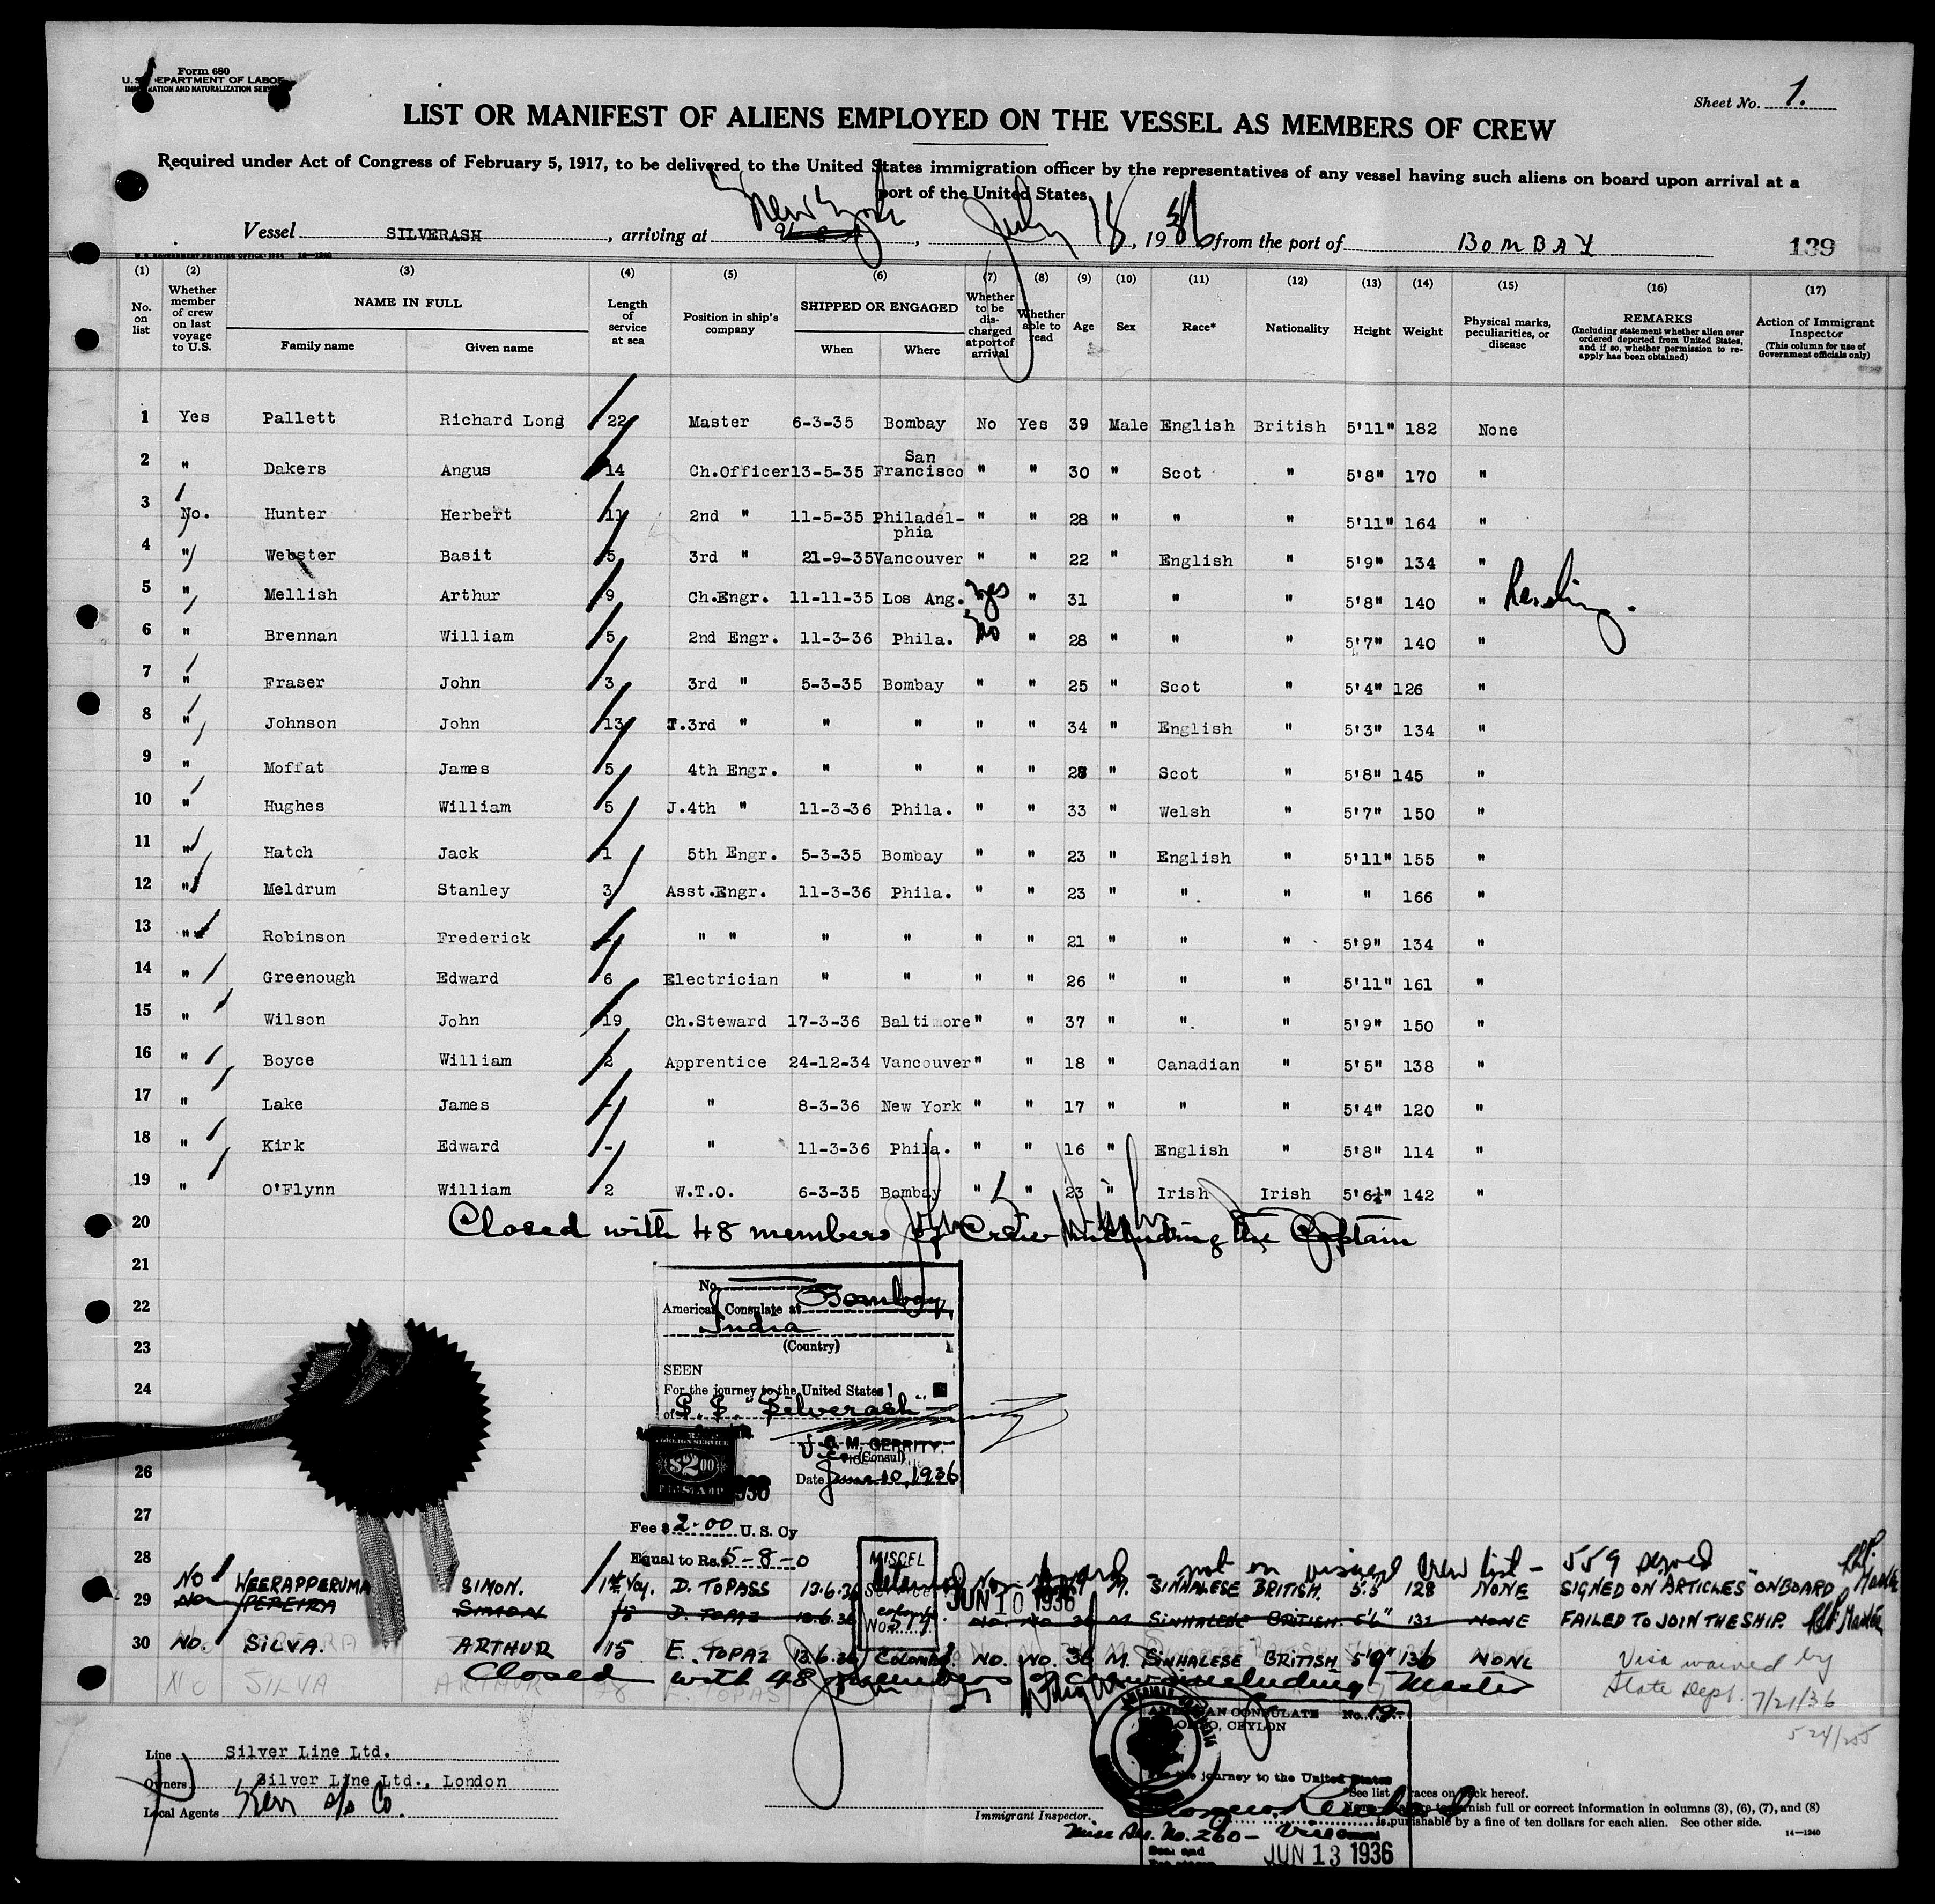 Form 680
U.S. DEPARTMENT OF LABOR
IMMIGRATION AND NATURALIZATION SERVICE
Sheet No. 1.
LIST OR MANIFEST OF ALIENS EMPLOYED ON THE VESSEL AS MEMBERS OF CREW
Required under Act of Congress of February 5, 1917, to be delivered to the United States immigration officer by the representatives of any vessel having such aliens on board upon arrival at a
port of the United States
Vessel SILVERASH, arriving at New York, July 18, 1936 from the port of BOMBAY
139
U.S. GOVERNMENT PRINTING OFFICE 14—1240
(1) (2) (3) (4) (5) (6) (7) (8) (9) (10) (11) (12) (13) (14) (15) (16) (17)
No. on list
Whether member of crew on last voyage to U.S.
NAME IN FULL
Family name Given name
Length of service at sea
Position in ship's company
SHIPPED OR ENGAGED
When Where
Whether to be discharged at port of arrival
Whether able to read
Age Sex Race* Nationality Height Weight
Physical marks, peculiarities, or disease
REMARKS
(Including statement whether alien ever ordered deported from United States, and if so, whether permission to re-apply has been obtained)
Action of Immigrant Inspector
(This column for use of Government officials only)
1 Yes Pallett Richard Long 22 Master 6-3-35 Bombay No Yes 39 Male English British 5'11" 182 None
2 " Dakers Angus 14 Ch.Officer 13-5-35 San Francisco " " 30 " Scot " 5'8" 170 "
3 No. Hunter Herbert 11 2nd " 11-5-35 Philadel-phia " " 28 " " " 5'11" 164 "
4 " Webster Basit 5 3rd " 21-9-35 Vancouver " " 22 " English " 5'9" 134 "
5 " Mellish Arthur 9 Ch.Engr. 11-11-35 Los Ang. Yes " 31 " " 5'8" 140 "
6 " Brennan William 5 2nd Engr. 11-3-36 Phila. No " 28 " " " 5'7" 140 "
7 " Fraser John 3 3rd " 5-3-35 Bombay " " 25 " Scot " 5'4" 126 "
8 " Johnson John 13 J.3rd " " " " " 34 " English " 5'3" 134 "
9 " Moffat James 5 4th Engr. " " " " " Scot " 5'8" 145 "
10 " Hughes William 5 J.4th " 11-3-36 Phila. " " 33 " Welsh " 5'7" 150 "
11 " Hatch Jack 1 5th Engr. 5-3-35 Bombay " " 23 " English " 5'11" 155 "
12 " Meldrum Stanley 3 Asst.Engr. 11-3-36 Phila. " " 23 " " " " 166 "
13 " Robinson Frederick - " " " " " " 21 " " " 5'9" 134 "
14 " Greenough Edward 6 Electrician " " " " 26 " " " 5'11" 161 "
15 " Wilson John 19 Ch.Steward 17-3-36 Baltimore " " 37 " " " 5'9" 150 "
16 " Boyce William 2 Apprentice 24-12-34 Vancouver " " 18 " Canadian " 5'5" 138 "
17 " Lake James - " 8-3-36 New York " " 17 " " " 5'4" 120 "
18 " Kirk Edward - " 11-3-36 Phila. " " 16 " English " 5'8" 114 "
19 " O'Flynn William 2 W.T.O. 6-3-35 Bombay " " 23 " Irish Irish 5'6½" 142 "
20 Closed with 48 members of Crew including the Captain
21
22
23
24
26
27
28
No.
American Consulate at Bombay
India
(Country)
SEEN
For the journey to the United States
of S.S. "Silverash"
FOREIGN SERVICE
$2.00
FEE STAMP
J. C. M. GERRITY
(Consul)
Date June 10, 1936
Fee $ 2.00 U. S. Cy
Equal to Rs. 5-8-0
JUN 10 1936
not on visaed Crew list - 559 served
NO WEERAPPERUMA SIMON. 1st Voy. D. TOPASS 13.6.36 M. SINHALESE BRITISH. 5'5" 128 NONE SIGNED ON "ARTICLES" ONBOARD Master
29 No PEREIRA SIMON 15 D. TOPAZ No. No M SINHALESE BRITISH. 5'6" 132 NONE FAILED TO JOIN THE SHIP. Master
30 NO. SILVA. ARTHUR 15 E. TOPAZ 13.6.36 Colombo NO. NO. 36 M. SINHALESE BRITISH 5'9" 136 NONE
Closed with 48 members of crew including Master
Visa waived by
State Dept. 7/21/36
No SILVA ARTHUR E. TOPAS
AMERICAN CONSULATE
COLOMBO, CEYLON
No. 19-
For the journey to the United States
Misc Ser. No. 260-
Seal and
JUN 13 1936
Line Silver Line Ltd.
Owners Silver Line Ltd., London
Local Agents Kerr S/S Co.
Immigrant Inspector.
*See list of races on back hereof.
Note.—Failure to furnish full or correct information in columns (3), (6), (7), and (8)
is punishable by a fine of ten dollars for each alien. See other side.
14—1240